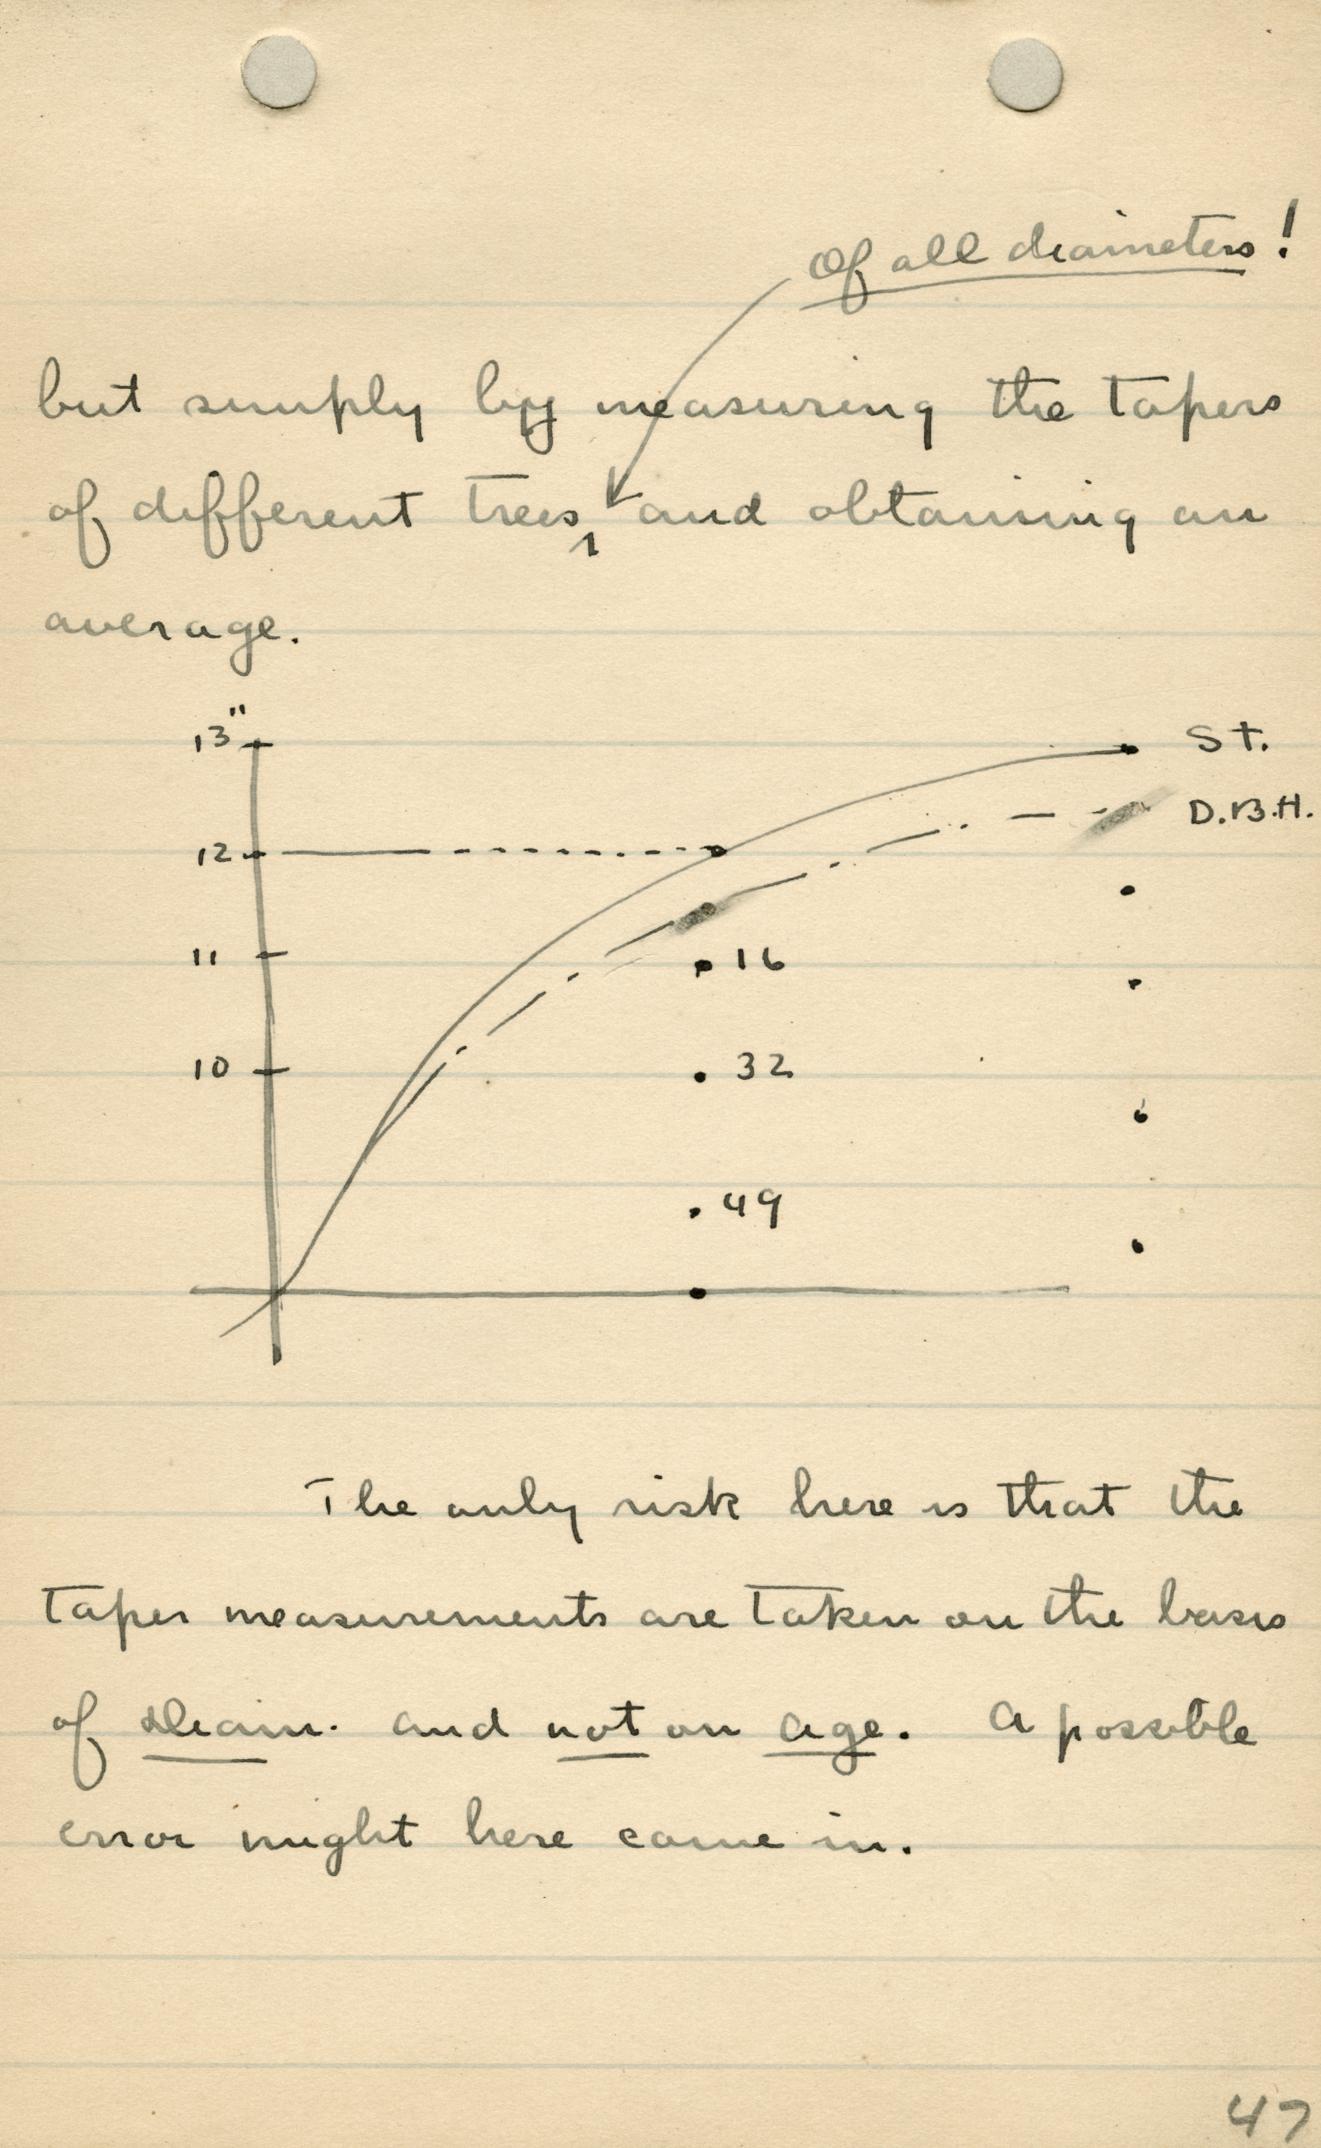 Of all diameters!
but simply by measuring the tapers
of different trees, and obtaining an
average.
13" St.
D.B.H.
12
11 16
10 32
49
The only risk here is that the
taper measurements are taken on the basis
of diam. and not on age. A possible
error might here come in.
47